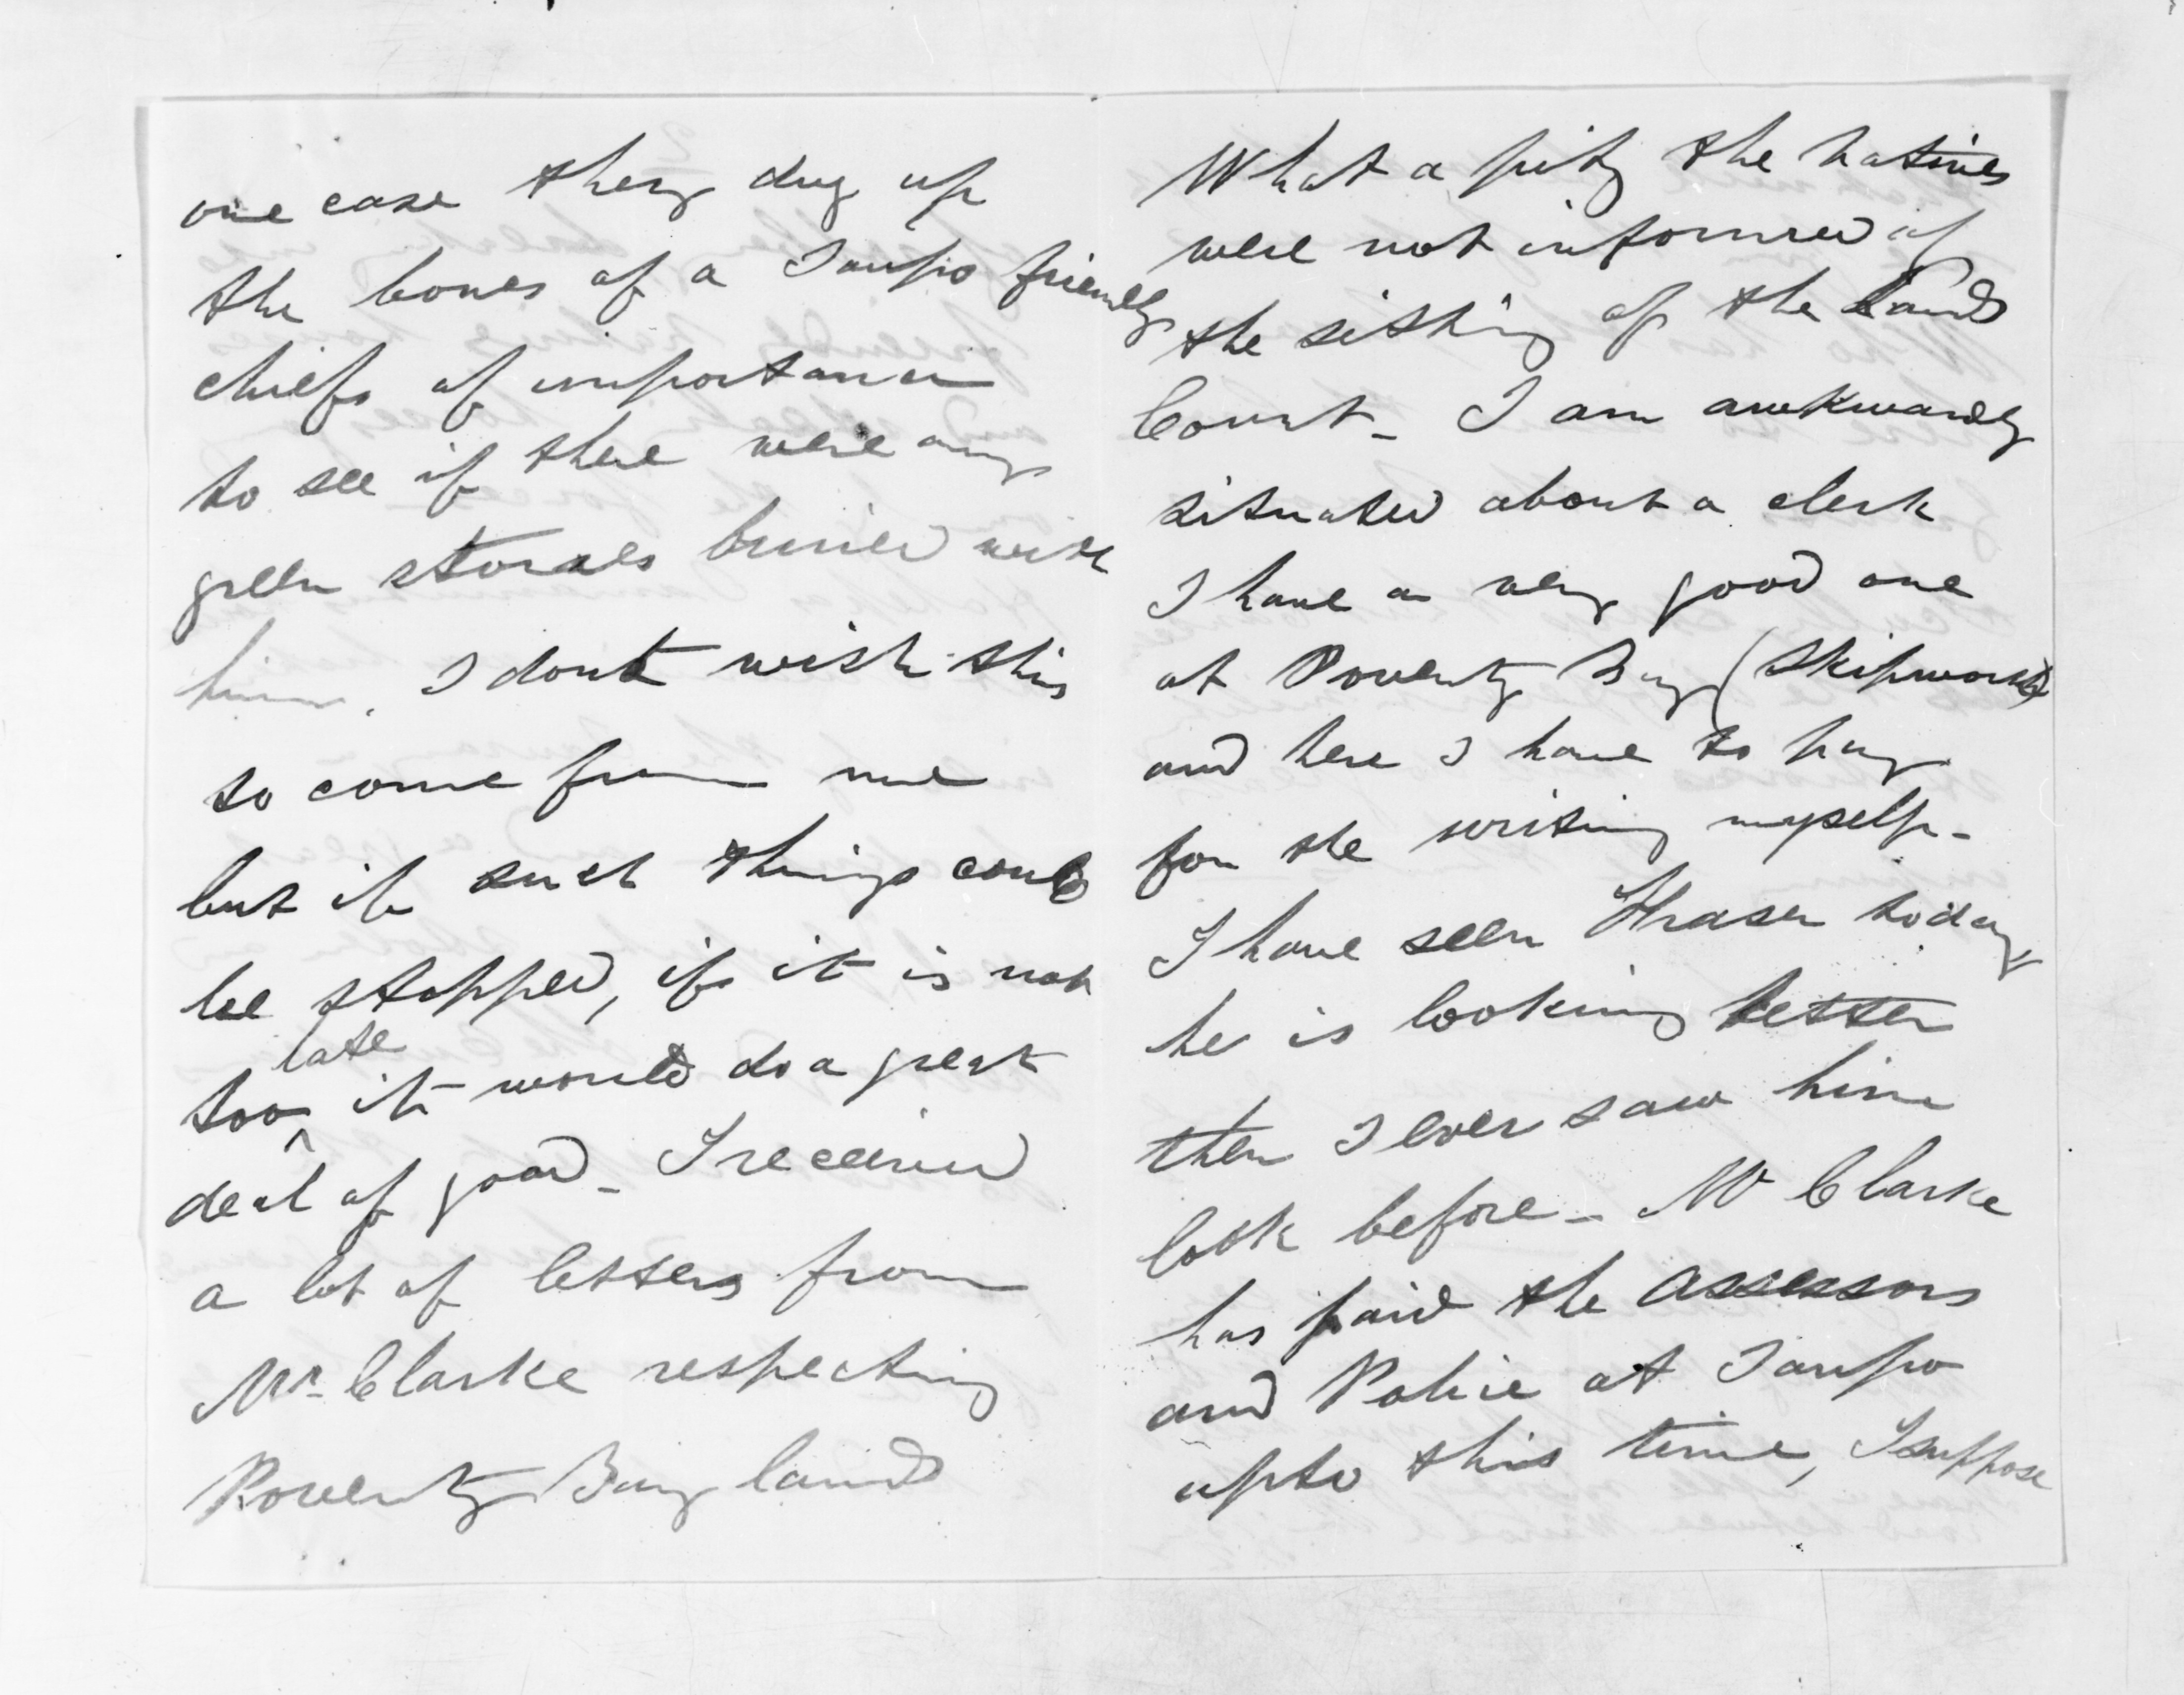 one case they dug up
the bones of a Taupo friendly
chiefs of importance
to see if there were any
green stones buried with
him. I dont wish this
to come from me
but if such things could
be stopped, if it is not
too late it would do a great
deal of good_ I received
a lot of letters from
Mr. Clarke respecting
Poverty Bay land
What a pity the natives
were not informed of
the sitting of the Land
Court_ I am awkwardly
situated about a clerk
I have a very good one
at Poverty Bay (Skipworth)
and here I have to pay
for the writing myself_
I have seen Fraser today
he is looking better
then I ever saw him
look before_ Mr Clarke
has paid the assessors
and Police at Taupo
upto this time, I suppose